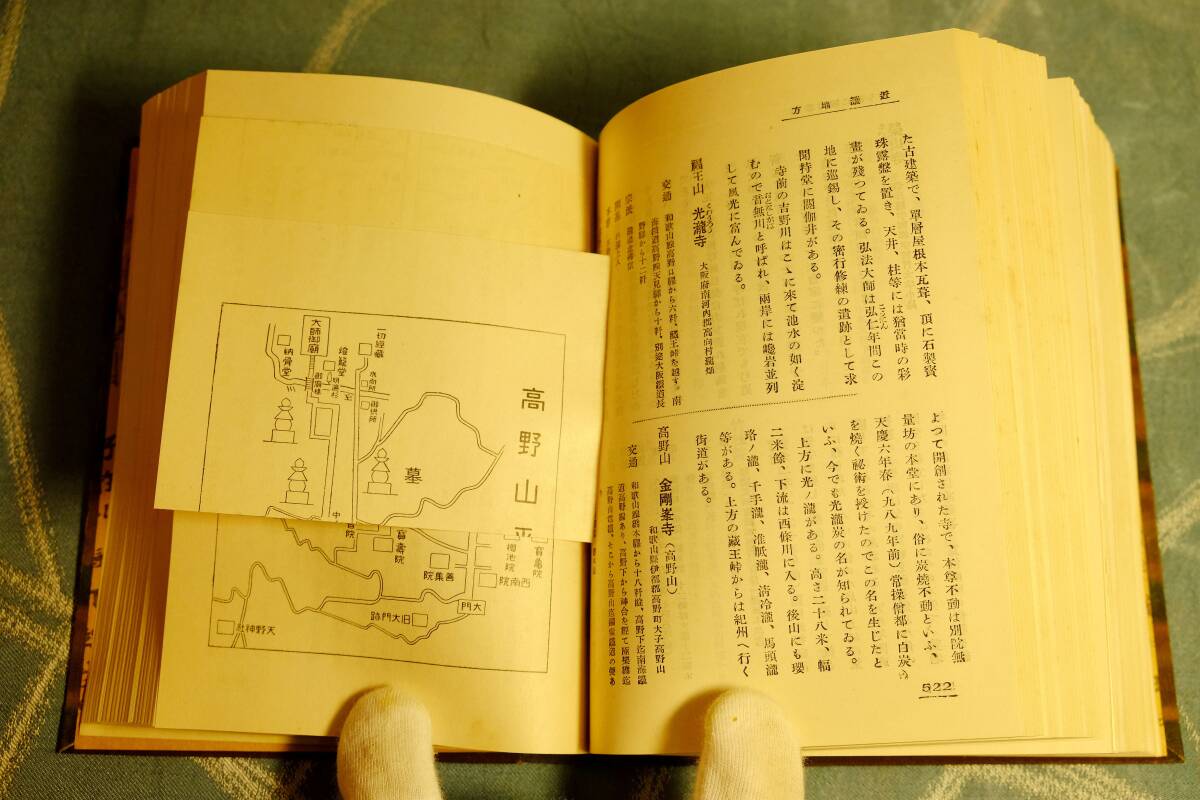 近畿地方
た古建築で、單層屋根本瓦葺、頂に石製寳
珠露盤を置き、天井、柱等には猶當時の彩
畫が殘つてゐる。弘法大師は弘仁年間この
地に巡錫し、その密行修練の遺跡として求
聞持堂に閼伽井がある。
寺前の吉野川はこゝに來て池水の如く淀
むので音無川と呼ばれ、兩岸には巉岩並列
して風光に富んでゐる。
光瀧寺 大阪府南河內郡高向村瀧畑
交通 和歌山線高野口驛から六粁、藏王峠を越す。南
海鐵道高野線天見驛から十粁、別途大阪鐵道長
野驛から十二粁
宗派
よつて開創された寺で、本尊不動は別院無
量坊の本堂にあり、俗に炭燒不動といふ、
天慶六年春(九八九年前)常操僧都に白炭
を燒く祕術を授けたのでこの名を生じたと
いふ、今でも光瀧炭の名が知られてゐる。
上方に光ノ瀧がある。高さ二十八米、幅
二米餘、下流は西條川に入る。後山にも瓔
珞ノ瀧、千手瀧、准胝瀧、淸冷瀧、馬頭瀧
等がある。上方の藏王峠からは紀州へ行く
街道がある。
高野山 金剛峯寺(高野山)
和歌山縣伊都郡高野町大字高野山
交通 和歌山線橋本驛から十八粁餘、高野下迄南海鐵
道高野線あり、高野下から神谷を經て極樂橋迄
高野山電鐵、それから高野山迄鋼索鐵道の便あ
522
高野山平
大師御廟
納骨堂
燈籠堂
御廟橋
一切經藏
水向所
御供所
墓
中
寳壽院
善集院
西南院
寳龜院
大門
旧大門跡
天野神社